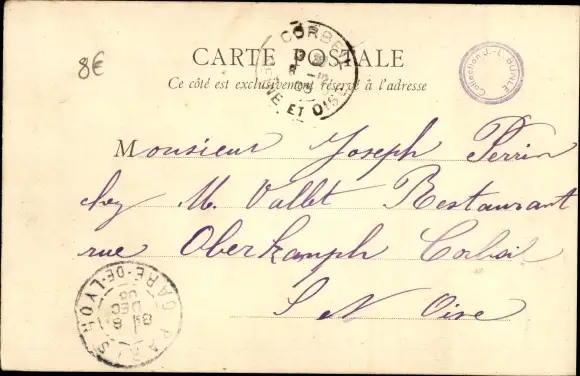 8€
CARTE POSTALE
Ce côté est exclusivement réservé à l'adresse
CORBEIL
SEINE ET OISE
Collection J.-L. BUMLE
Monsieur Joseph Perrin
chez M. Vallet Restaurant
rue Oberkampf Corbeil
S N Oise
PARIS GARE-DE-LYON
8
DEC
05